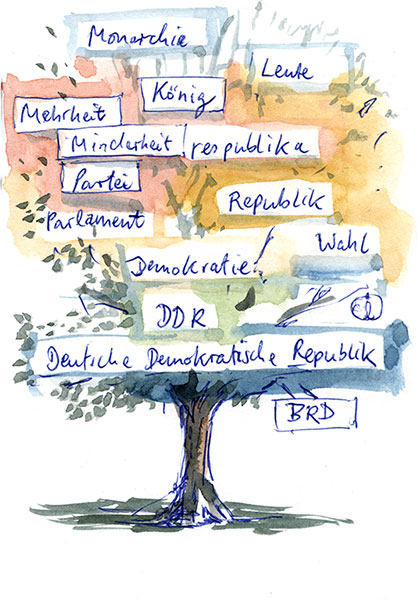 Monarchie
Leute
König
Mehrheit
Minderheit respublika
Partei
Republik
Parlament
Wahl
Demokratie!
DDR
Deutsche Demokratische Republik
BRD